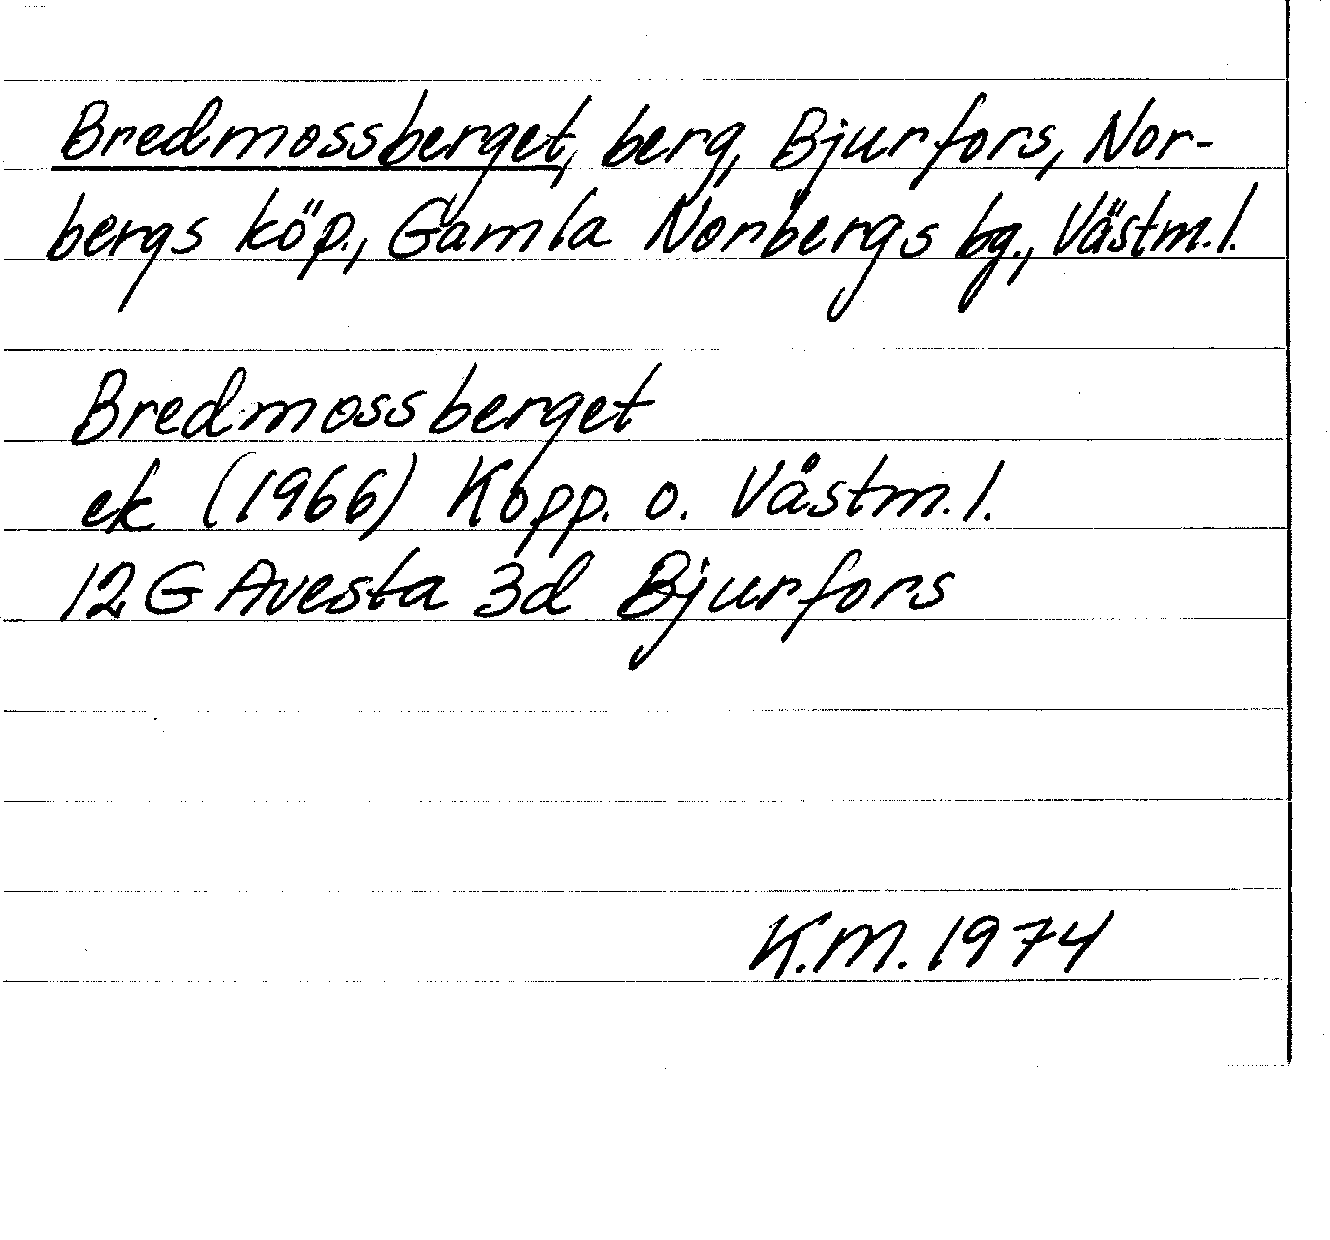 Bredmossberget, berg, Bjurfors, Nor-
bergs köp., Gamla Norbergs bg., Västm.l.
Bredmossberget
ek (1966) Kopp. o. Västm.l.
12G Avesta 3d Bjurfors
K.M. 1974